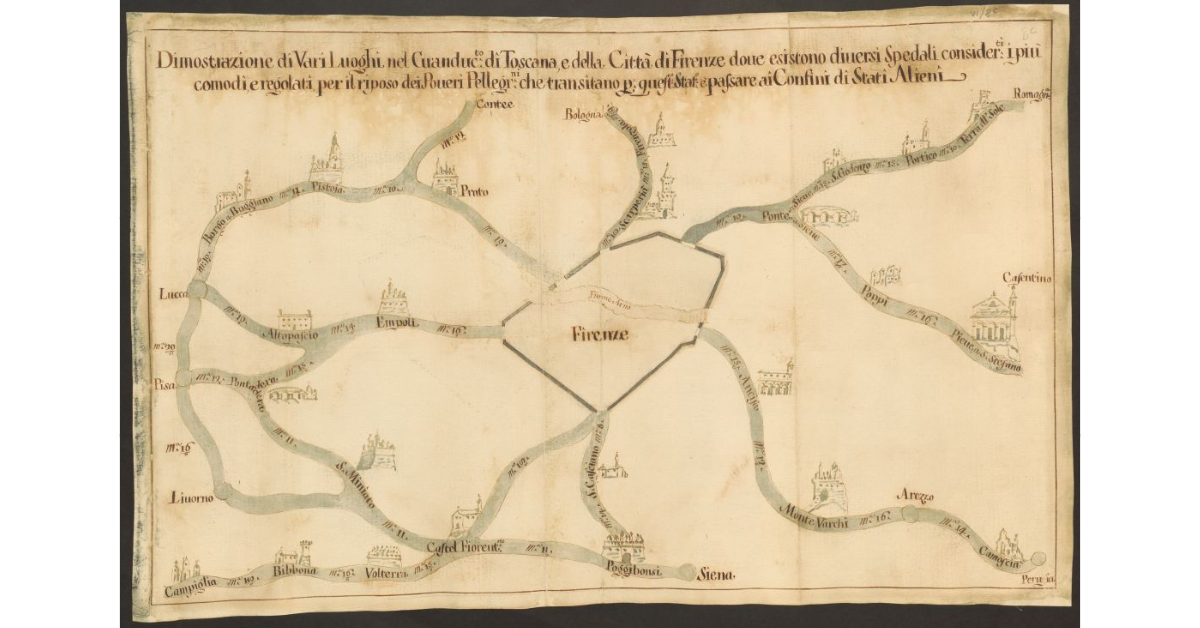 Dimostrazione di Vari Luoghi, nel Granduc.to di Toscana, e della Città di Firenze doue esistono diuersi Spedali consider.ti i più
comodi, e regolati per il riposo dei Poueri Pellegr.ni che transitano p; questi Stati e passare ai Confini di Stati Alieni
Contee
Bologna
Romagn
m.a 10.
Terra del Sole
Portico
m.a 15.
S. Godenzo
Pistoia
m.a 10.
Prato
Scarperia
Ponte
Sieue
m.a 14.
Borgo a Buggiano
m.a 19.
m.a 17.
Casentino
Poppi
Lucca
Fiume Arno
Altopascio
Empoli
Firenze
m.a 16.
Pieue a S. Stefano
Pisa
Pontadera
m.a 15.
Ancisa
m.a 11.
m.a 16
S. Miniato
S. Casciano
m.a 8.
Liuorno
Monte Varchi
m.a 16.
Arezzo
m.a 11.
Castel Fiorent.no
m.a 11.
Camoscia
Bibbona
Volterra
Poggibonsi
Siena.
Campiglia
Perugia